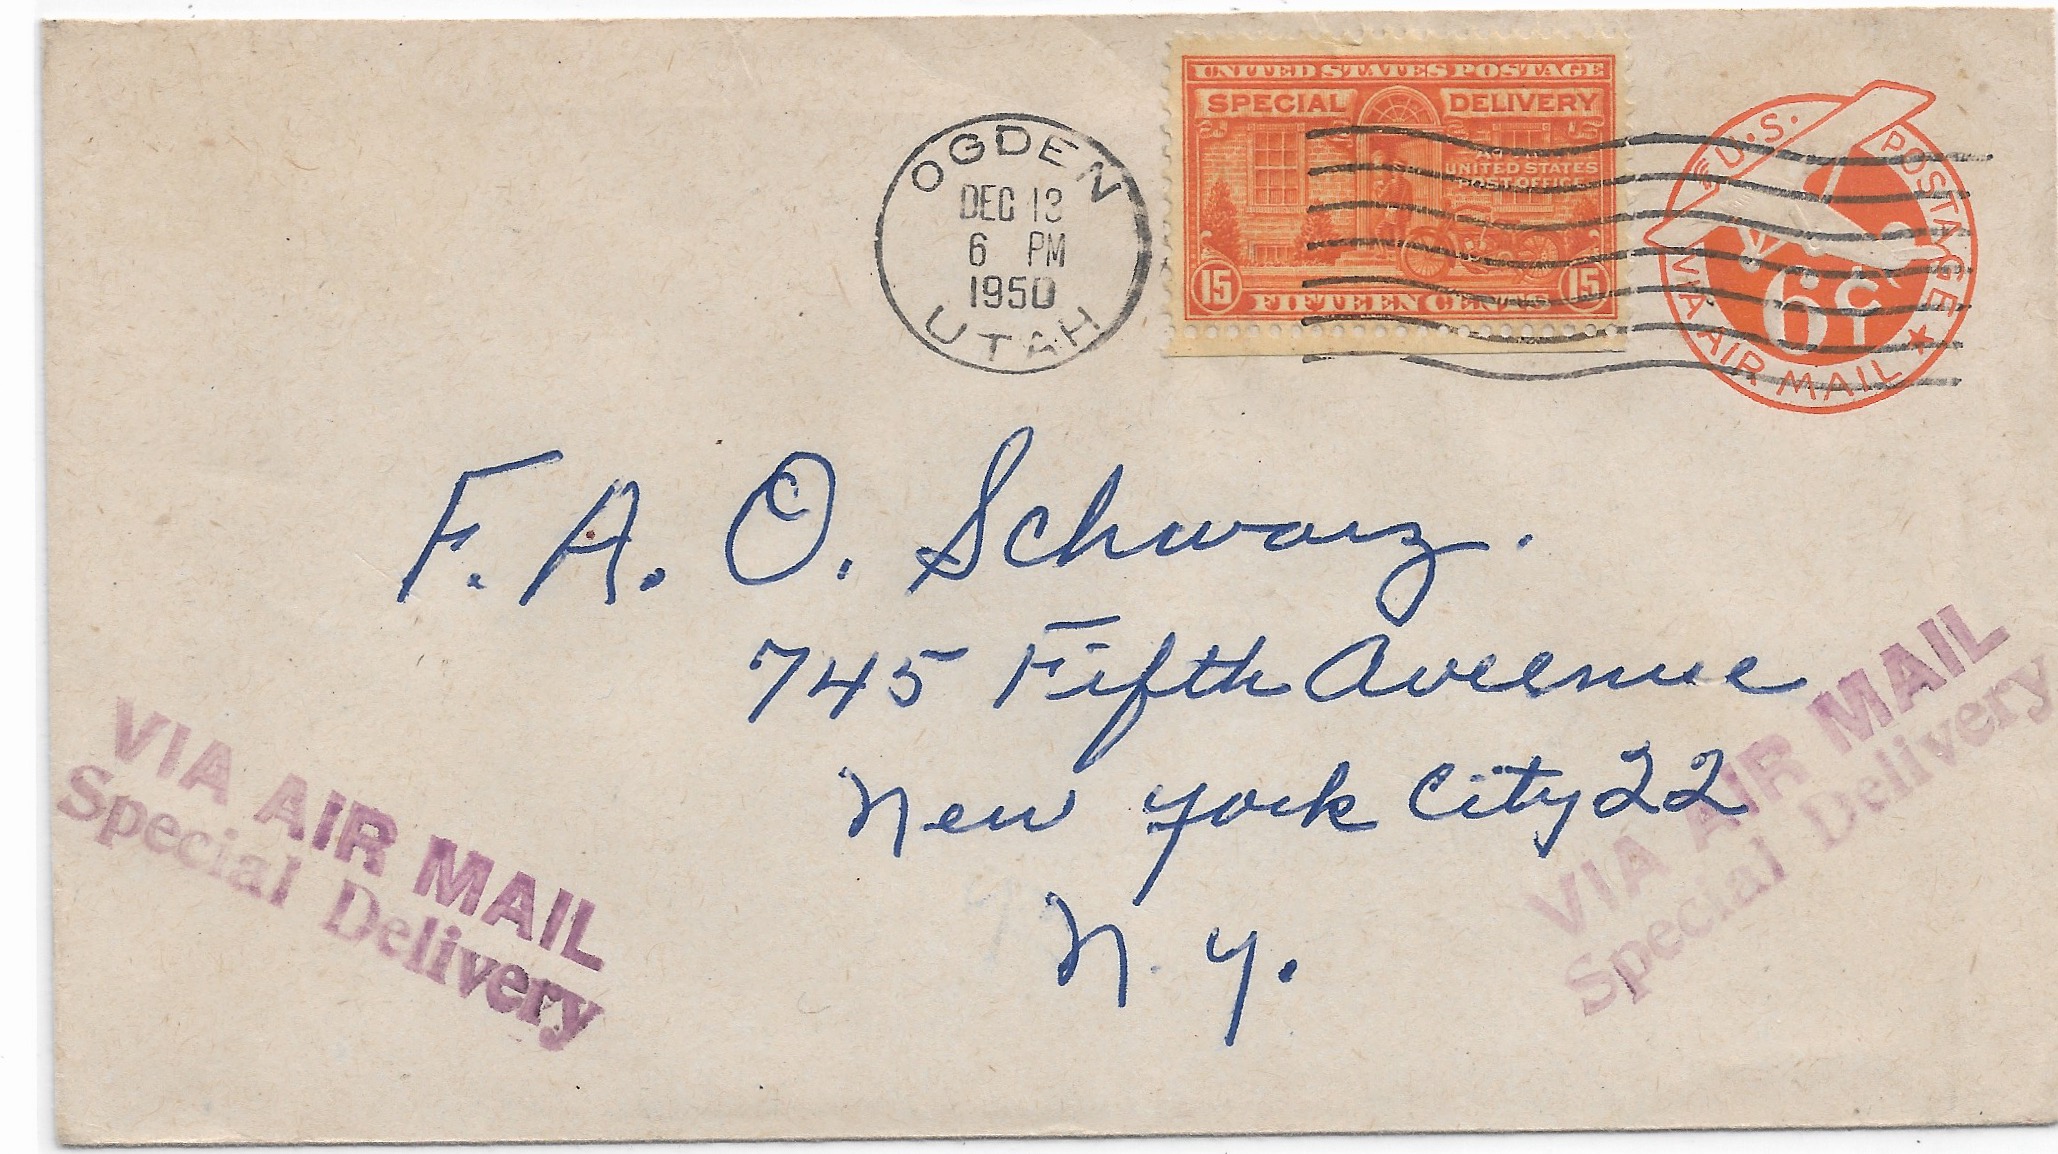 OGDEN
DEC 13
6 PM
1950
UTAH
UNITED STATES POSTAGE
SPECIAL DELIVERY
UNITED STATES
POST OFFICE
15 FIFTEEN CENTS 15
U.S. POSTAGE
6¢
VIA AIR MAIL
F. A. O. Schwarz.
745 Fifth Aveenue
New York City 22
N. Y.
VIA AIR MAIL
Special Delivery
VIA AIR MAIL
Special Delivery